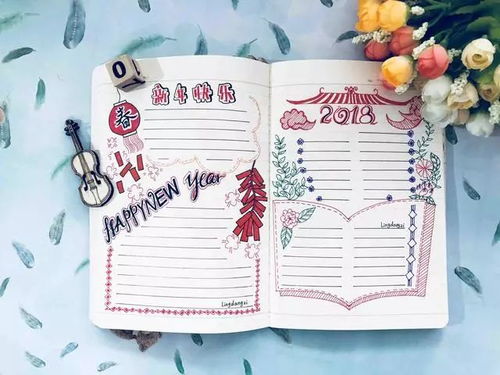 0
新年快乐
春
HAPPY NEW Year
Lingdangzi
2018
Lingdangzi